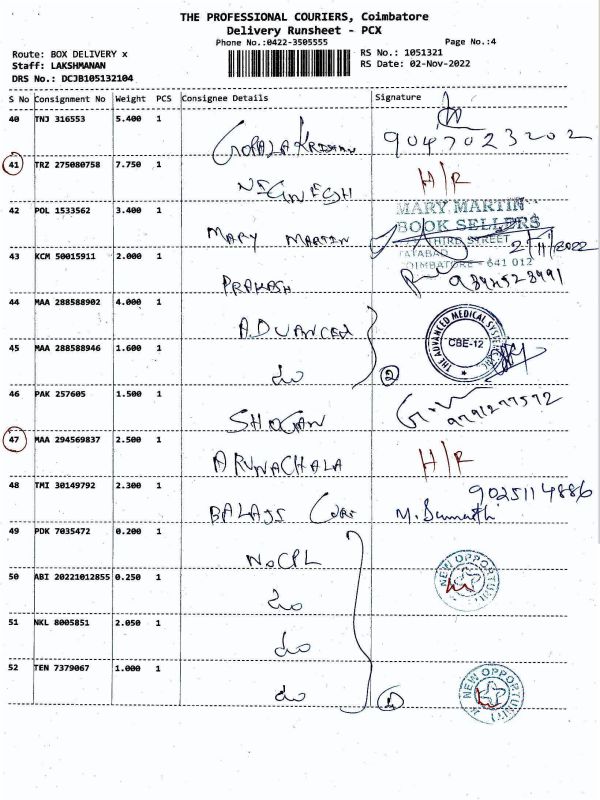 THE PROFESSIONAL COURIERS, Coimbatore
Delivery Runsheet - PCX
Phone No.:0422-3505555 Page No.:4
Route: BOX DELIVERY x RS No.: 1051321
Staff: LAKSHMANAN RS Date: 02-Nov-2022
DRS No.: DCJB105132104
S No Consignment No Weight PCS Consignee Details Signature
40 TNJ 316553 5.400 1
GOPALA KRISHNAN 9047023202
41 TRZ 275080758 7.750 1
H/R
42 POL 1533562 3.400 1
MARY MARTIN
MARY MARTIN
BOOK SELLERS
THIRD STREET
TATABAD
COIMBATORE - 641 012
2/11/2022
43 KCM 50015911 2.000 1
PRAKASH
44 MAA 288588902 4.000 1
ADVANCED
THE ADVANCED MEDICAL
CBE-12
45 MAA 288588946 1.600 1
do
2
46 PAK 257605 1.500 1
SHOGAN 9791277572
47 MAA 294569837 2.500 1
ARUNACHALA H/R
48 TMI 30149792 2.300 1
BALAJI 9025114886
49 PDK 7035472 0.200 1
NOCPL
NEW OPPORTUNITY
50 ABI 20221012855 0.250 1
do
51 NKL 8005851 2.050 1
do
52 TEN 7379067 1.000 1
do
NEW OPPORTUNITY